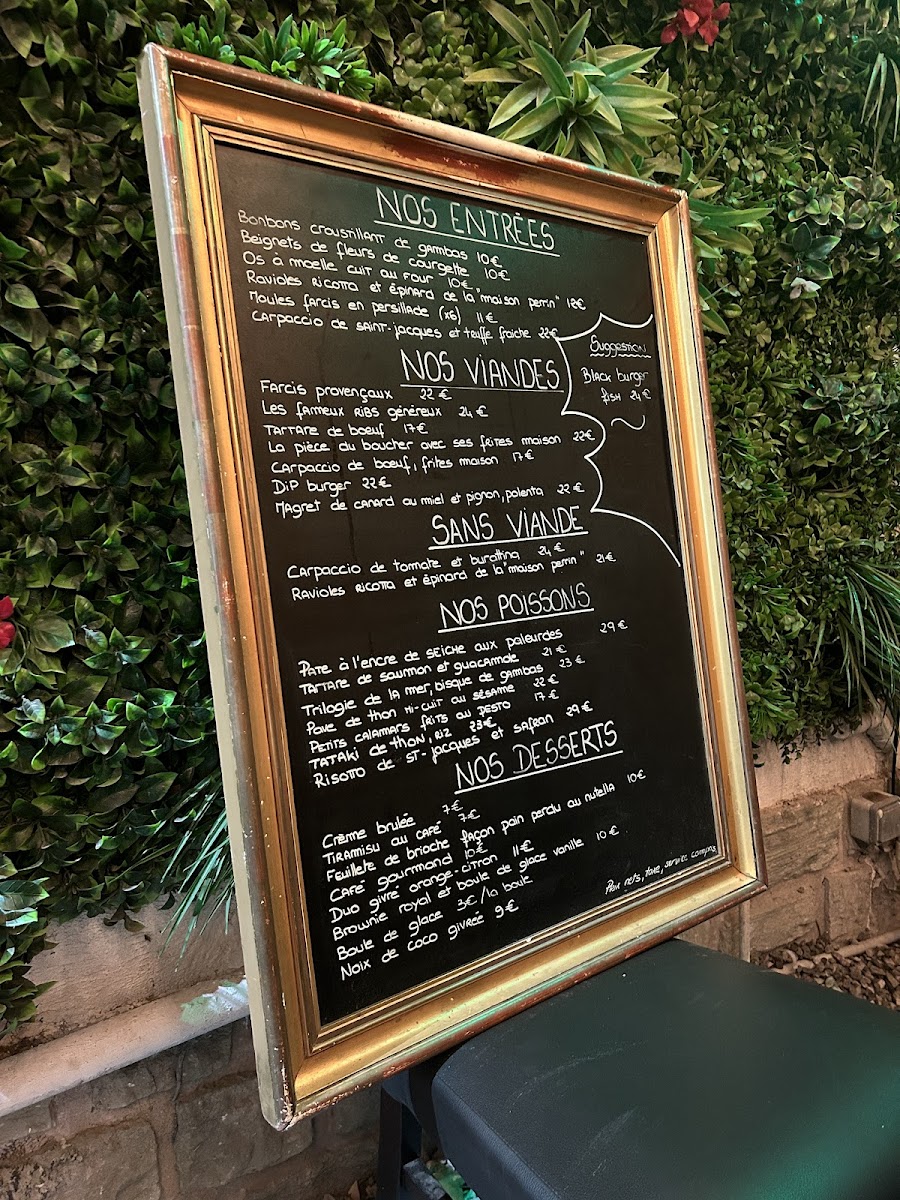 NOS ENTRÉES
Bonbons croustillant de gambas 10€
Beignets de fleurs de courgette 10€
Os à moelle cuit au four 10€
Ravioles ricotta et épinard de la "maison perrin" 12€
Moules farcis en persillade (x6) 11€
Carpaccio de saint-jacques et truffe fraiche 22€
Suggestion
Black burger
fish 24€
NOS VIANDES
Farcis provençaux 22€
Les fameux ribs généreux 24€
Tartare de boeuf 17€
La pièce du boucher avec ses frites maison 22€
Carpaccio de boeuf, frites maison 17€
Dip burger 22€
Magret de canard au miel et pignon, polenta 22€
SANS VIANDE
Carpaccio de tomate et burattina 24€
Ravioles ricotta et épinard de la "maison perrin" 21€
NOS POISSONS
Pate à l'encre de seiche aux paleurdes 29€
Tartare de saumon et guacamole 21€
Trilogie de la mer, bisque de gambas 23€
Pave de thon mi-cuit au sésame 22€
Petits calamars frits au pesto 17€
Tataki de thon, riz 23€
Risotto de st-jacques et safran 29€
NOS DESSERTS
Crème brulée 7€
Tiramisu au café 7€
Feuillete de brioche façon pain perdu au nutella 10€
Café gourmand 10€
Duo givré orange-citron 11€
Brownie royal et boule de glace vanille 10€
Boule de glace 3€/la boule
Noix de coco givrée 9€
Prix nets, taxe, service compris